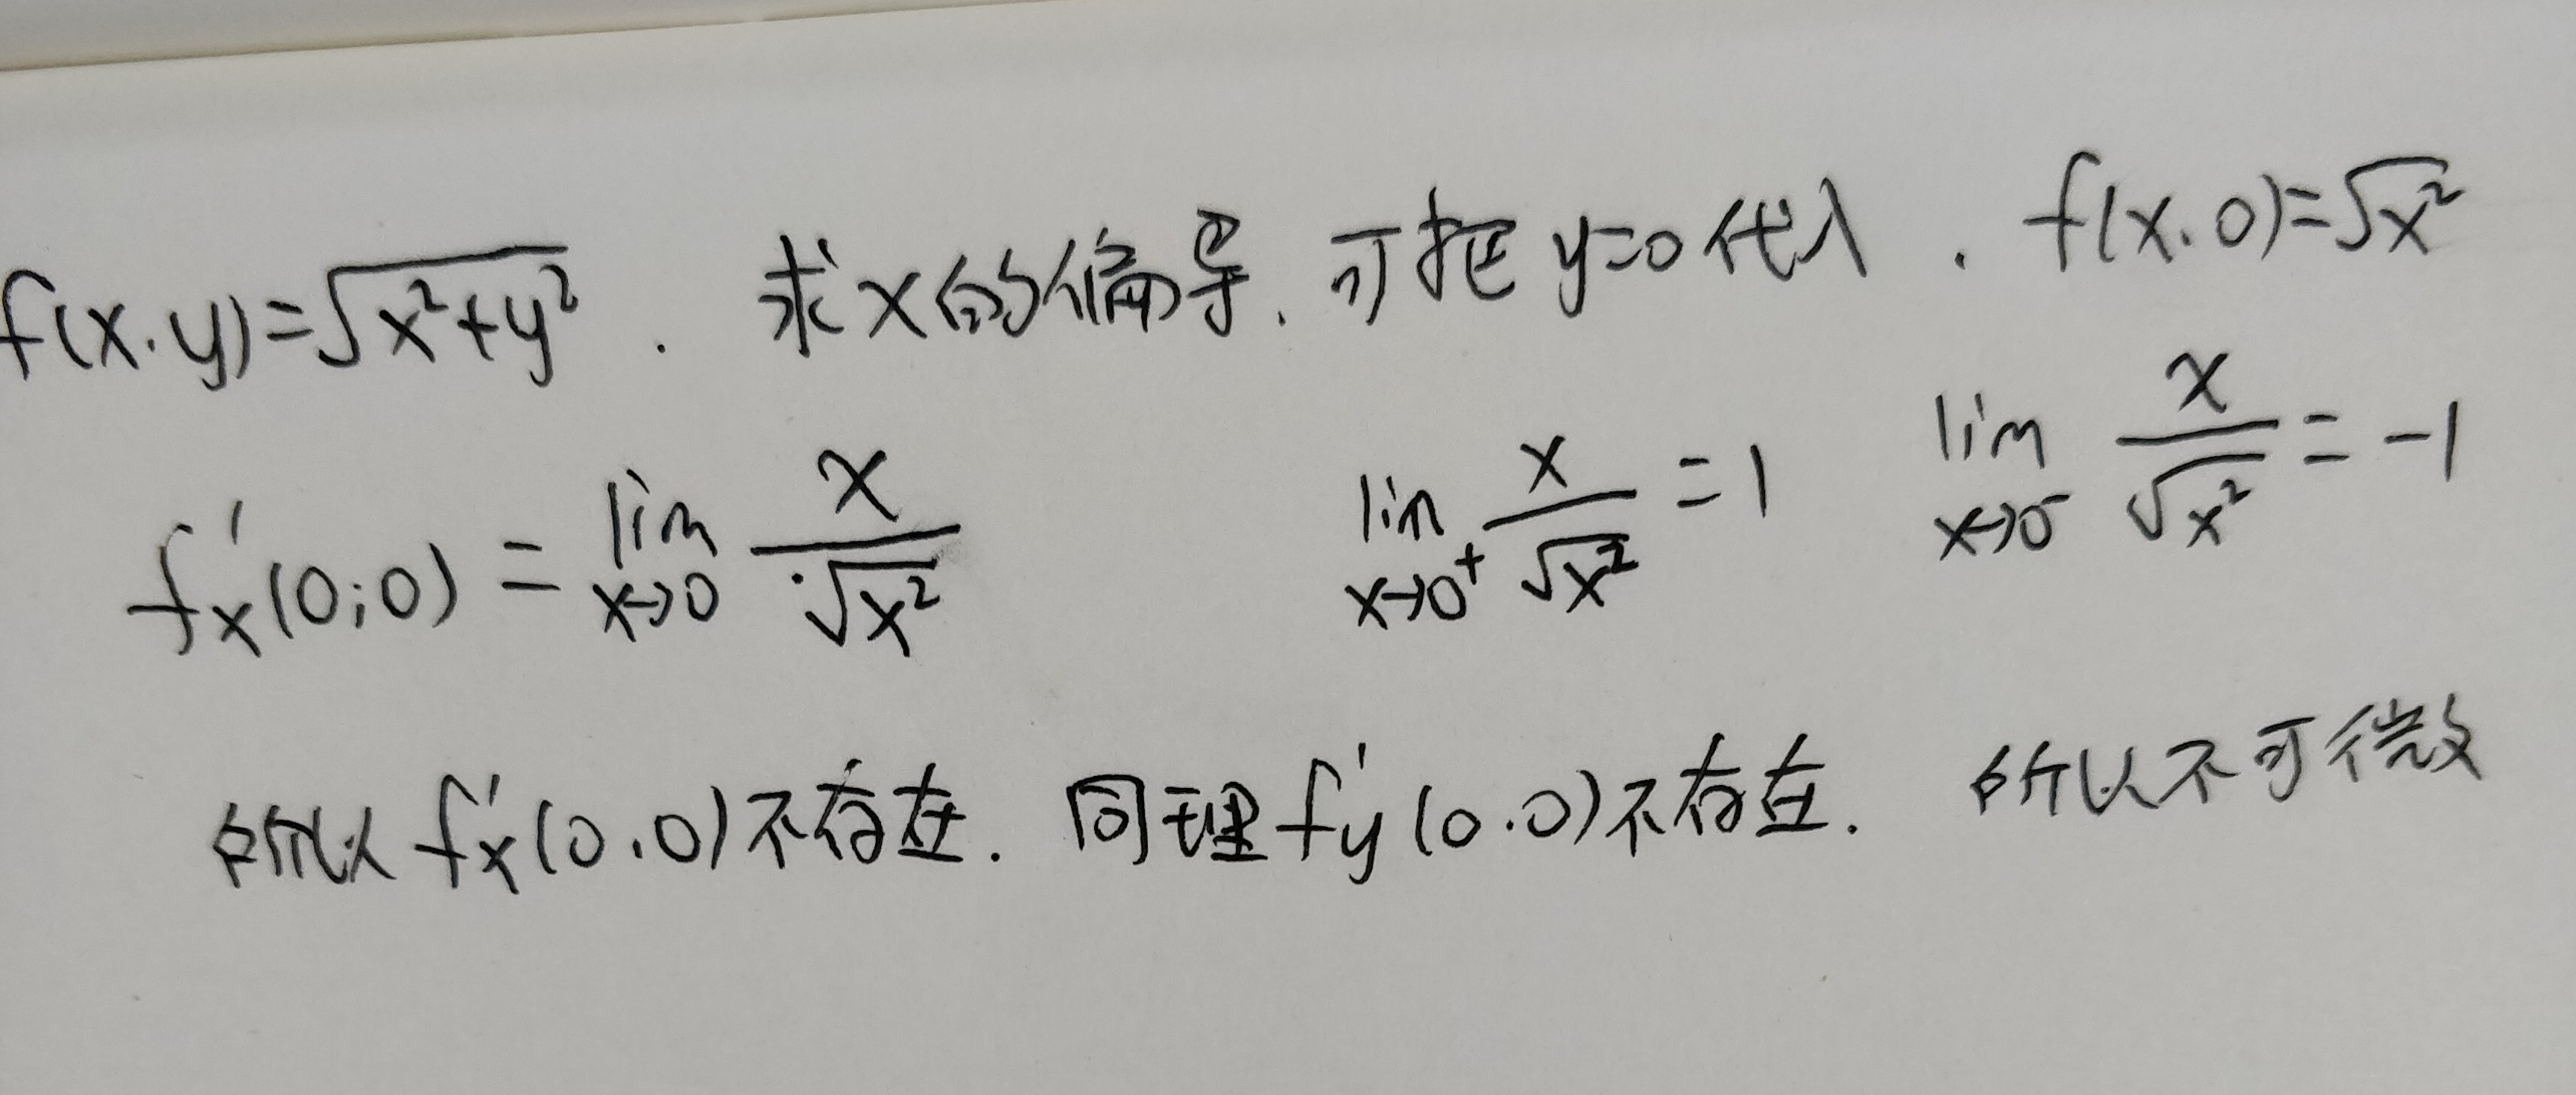 f(x.y)=√(x²+y²) . 求x的偏导. 可把y=0代入 . f(x.0)=√x²
f'x(0;0) = lim x→0 x/√x² lim x→0⁺ x/√x² =1 lim x→0⁻ x/√x² = -1
所以 f'x(0.0)不存在. 同理f'y(0.0)不存在. 所以不可微